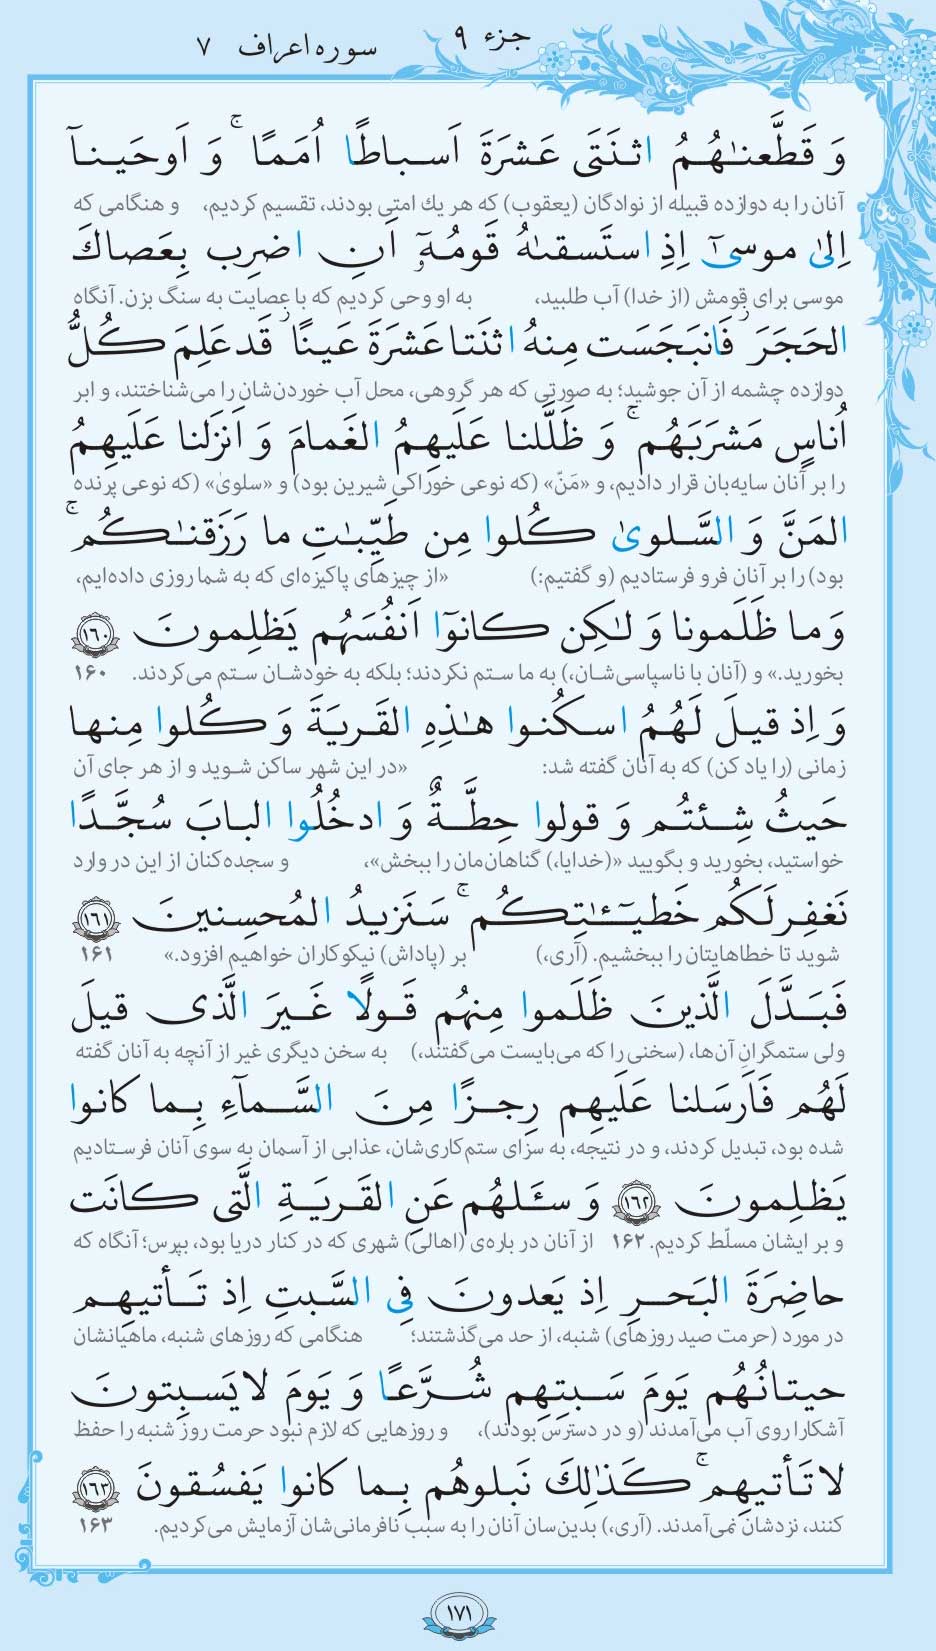 جزء ۹
سوره اعراف ۷
وَ قَطَّعنٰهُمُ اثنَتَى عَشرَةَ اَسباطًا اُمَمًا ۚ وَ اَوحَينآ
آنان را به دوازده قبیله از نوادگان (یعقوب) که هر یك امتی بودند، تقسیم کردیم، و هنگامی که
اِلىٰ موسىٓ اِذِ استَسقىٰهُ قَومُهٓ اَنِ اضرِب بِعَصاكَ
موسی برای قومش (از خدا) آب طلبید، به او وحی کردیم که با عصایت به سنگ بزن. آنگاه
الحَجَرَ ۖ فَانبَجَسَت مِنهُ اثنَتا عَشرَةَ عَينًا ۖ قَد عَلِمَ كُلُّ
دوازده چشمه از آن جوشید؛ به صورتی که هر گروهی، محل آب خوردن‌شان را می‌شناختند، و ابر
اُناسٍ مَشرَبَهُم ۚ وَ ظَلَّلنا عَلَيهِمُ الغَمامَ وَ اَنزَلنا عَلَيهِمُ
را بر آنان سایه‌بان قرار دادیم، و «مَنّ» (که نوعی خوراکی شیرین بود) و «سلویٰ» (که نوعی پرنده
المَنَّ وَ السَّلوىٰ كُلوا مِن طَيِّبٰتِ ما رَزَقنٰكُم ۚ
بود) را بر آنان فرو فرستادیم (و گفتیم:) «از چیزهای پاکیزه‌ای که به شما روزی داده‌ایم،
وَ ما ظَلَمونا وَ لٰكِن كانوٓا اَنفُسَهُم يَظلِمونَ ۱۶۰
بخورید.» و (آنان با ناسپاسی‌شان،) به ما ستم نکردند؛ بلکه به خودشان ستم می‌کردند. ۱۶۰
وَ اِذ قيلَ لَهُمُ اسكُنوا هٰذِهِ القَريَةَ وَ كُلوا مِنها
زمانی (را یاد کن) که به آنان گفته شد: «در این شهر ساکن شوید و از هر جای آن
حَيثُ شِئتُم وَ قولوا حِطَّةٌ وَ ادخُلُوا البابَ سُجَّدًا
خواستید، بخورید و بگویید «(خدایا،) گناهان‌مان را ببخش»، و سجده‌کنان از این در وارد
نَغفِر لَكُم خَطيٓـٰٔتِكُم ۚ سَنَزيدُ المُحسِنينَ ۱۶۱
شوید تا خطاهایتان را ببخشیم. (آری،) بر (پاداش) نیکوکاران خواهیم افزود.» ۱۶۱
فَبَدَّلَ الَّذينَ ظَلَموا مِنهُم قَولًا غَيرَ الَّذى قيلَ
ولی ستمگرانِ آن‌ها، (سخنی را که می‌بایست می‌گفتند،) به سخن دیگری غیر از آنچه به آنان گفته
لَهُم فَاَرسَلنا عَلَيهِم رِجزًا مِنَ السَّمآءِ بِما كانوا
شده بود، تبدیل کردند، و در نتیجه، به سزای ستم‌کاری‌شان، عذابی از آسمان به سوی آنان فرستادیم
يَظلِمونَ ۱۶۲ وَ سـَٔلهُم عَنِ القَريَةِ الَّتى كانَت
و بر ایشان مسلّط کردیم. ۱۶۲ از آنان در باره‌ی (اهالی) شهری که در کنار دریا بود، بپرس؛ آنگاه که
حاضِرَةَ البَحرِ اِذ يَعدونَ فِى السَّبتِ اِذ تَأتيهِم
در مورد (حرمت صید روزهای) شنبه، از حد می‌گذشتند؛ هنگامی که روزهای شنبه، ماهیانشان
حيتانُهُم يَومَ سَبتِهِم شُرَّعًا وَ يَومَ لا يَسبِتونَ
آشکارا روی آب می‌آمدند (و در دسترس بودند)، و روزهایی که لازم نبود حرمت روز شنبه را حفظ
لا تَأتيهِم ۚ كَذٰلِكَ نَبلوهُم بِما كانوا يَفسُقونَ ۱۶۳
کنند، نزدشان نمی‌آمدند. (آری،) بدین‌سان آنان را به سبب نافرمانی‌شان آزمایش می‌کردیم. ۱۶۳
۱۷۱